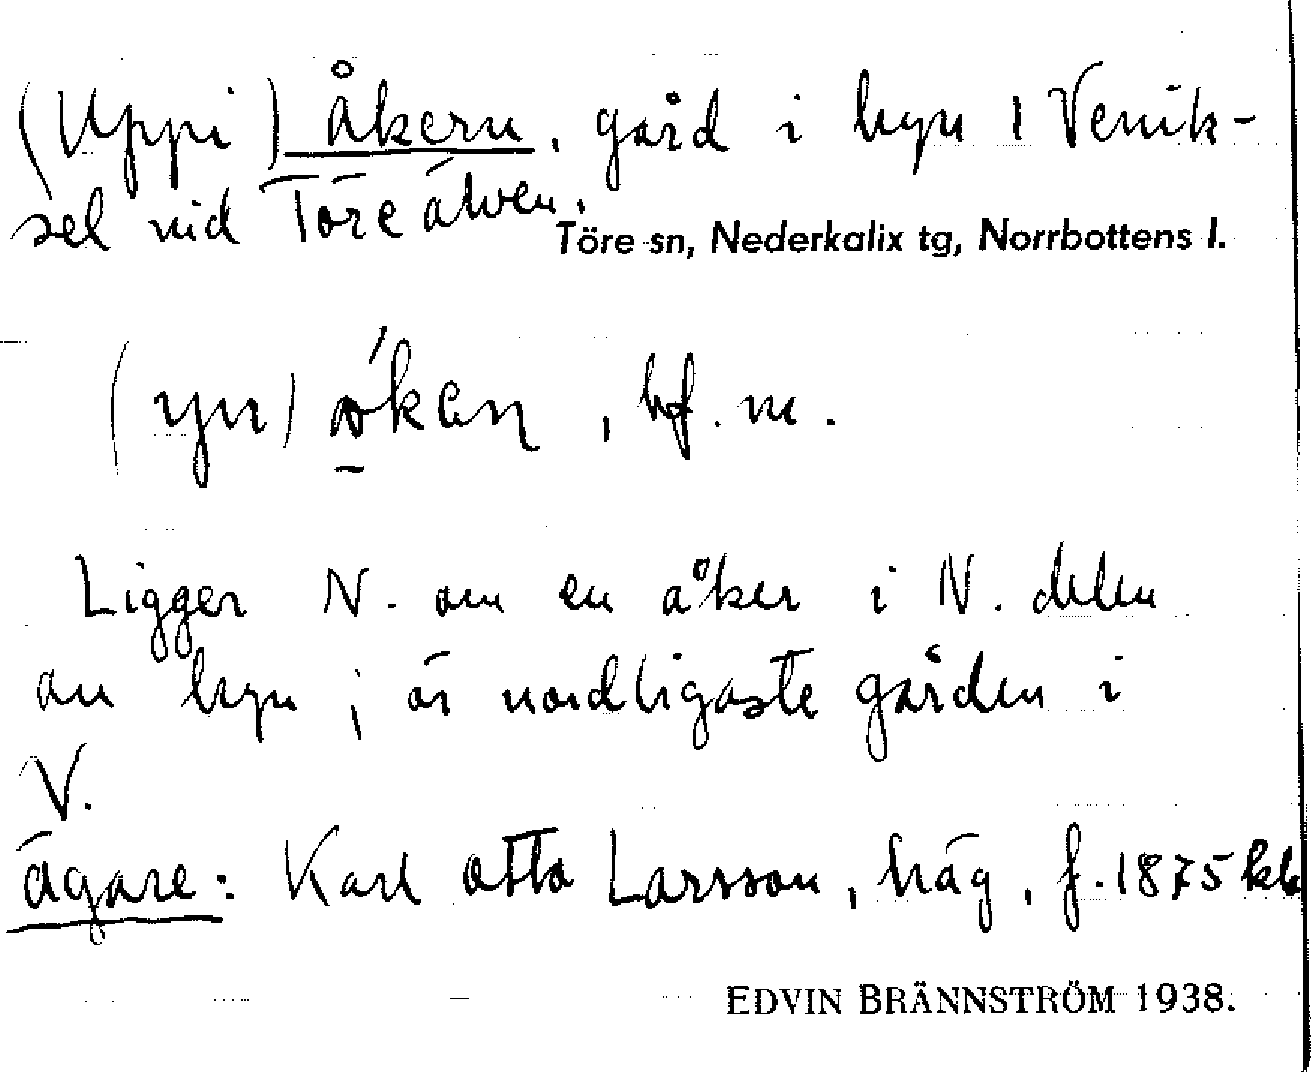 (Uppi) Åkern, gård i byn 1 Venik-
sel vid Töre älven.
Töre sn, Nederkalix tg, Norrbottens l.
(yn) ókan, bf. m.
Ligger N. om en åker i N. delen
av byn; är nordligaste gården i
V.
Ägare: Karl Otto Larsson, häg, f. 1875
EDVIN BRÄNNSTRÖM 1938.